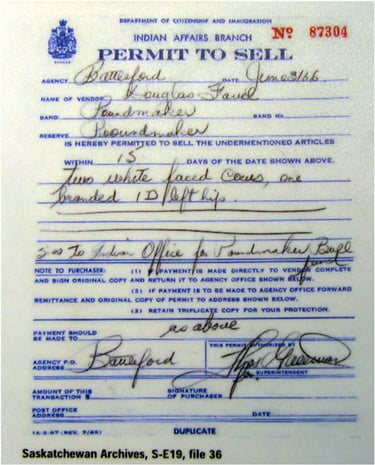 DEPARTMENT OF CITIZENSHIP AND IMMIGRATION
INDIAN AFFAIRS BRANCH
Nº 87304
PERMIT TO SELL
AGENCY Battleford DATE June 3/66
NAME OF VENDOR Douglas Favel
BAND Poundmaker BAND No
RESERVE Poundmaker
IS HEREBY PERMITTED TO SELL THE UNDERMENTIONED ARTICLES
WITHIN 15 DAYS OF THE DATE SHOWN ABOVE.
Two white faced cows, one
branded ID left hip.
to Indian Office for Poundmaker Bull
fund
NOTE TO PURCHASER: (1) IF PAYMENT IS MADE DIRECTLY TO VENDOR COMPLETE
AND SIGN ORIGINAL COPY AND RETURN IT TO AGENCY OFFICE SHOWN BELOW.
(2) IF PAYMENT IS TO BE MADE TO AGENCY OFFICE FORWARD
REMITTANCE AND ORIGINAL COPY OF PERMIT TO ADDRESS SHOWN BELOW.
(3) RETAIN TRIPLICATE COPY FOR YOUR PROTECTION.
PAYMENT SHOULD
BE MADE TO as above
AGENCY P.O.
ADDRESS Battleford
THIS PERMIT AUTHORIZED BY
for SUPERINTENDENT
AMOUNT OF THIS
TRANSACTION $
SIGNATURE
OF PURCHASER
POST OFFICE
ADDRESS DATE
DUPLICATE
Saskatchewan Archives, S-E19, file 36